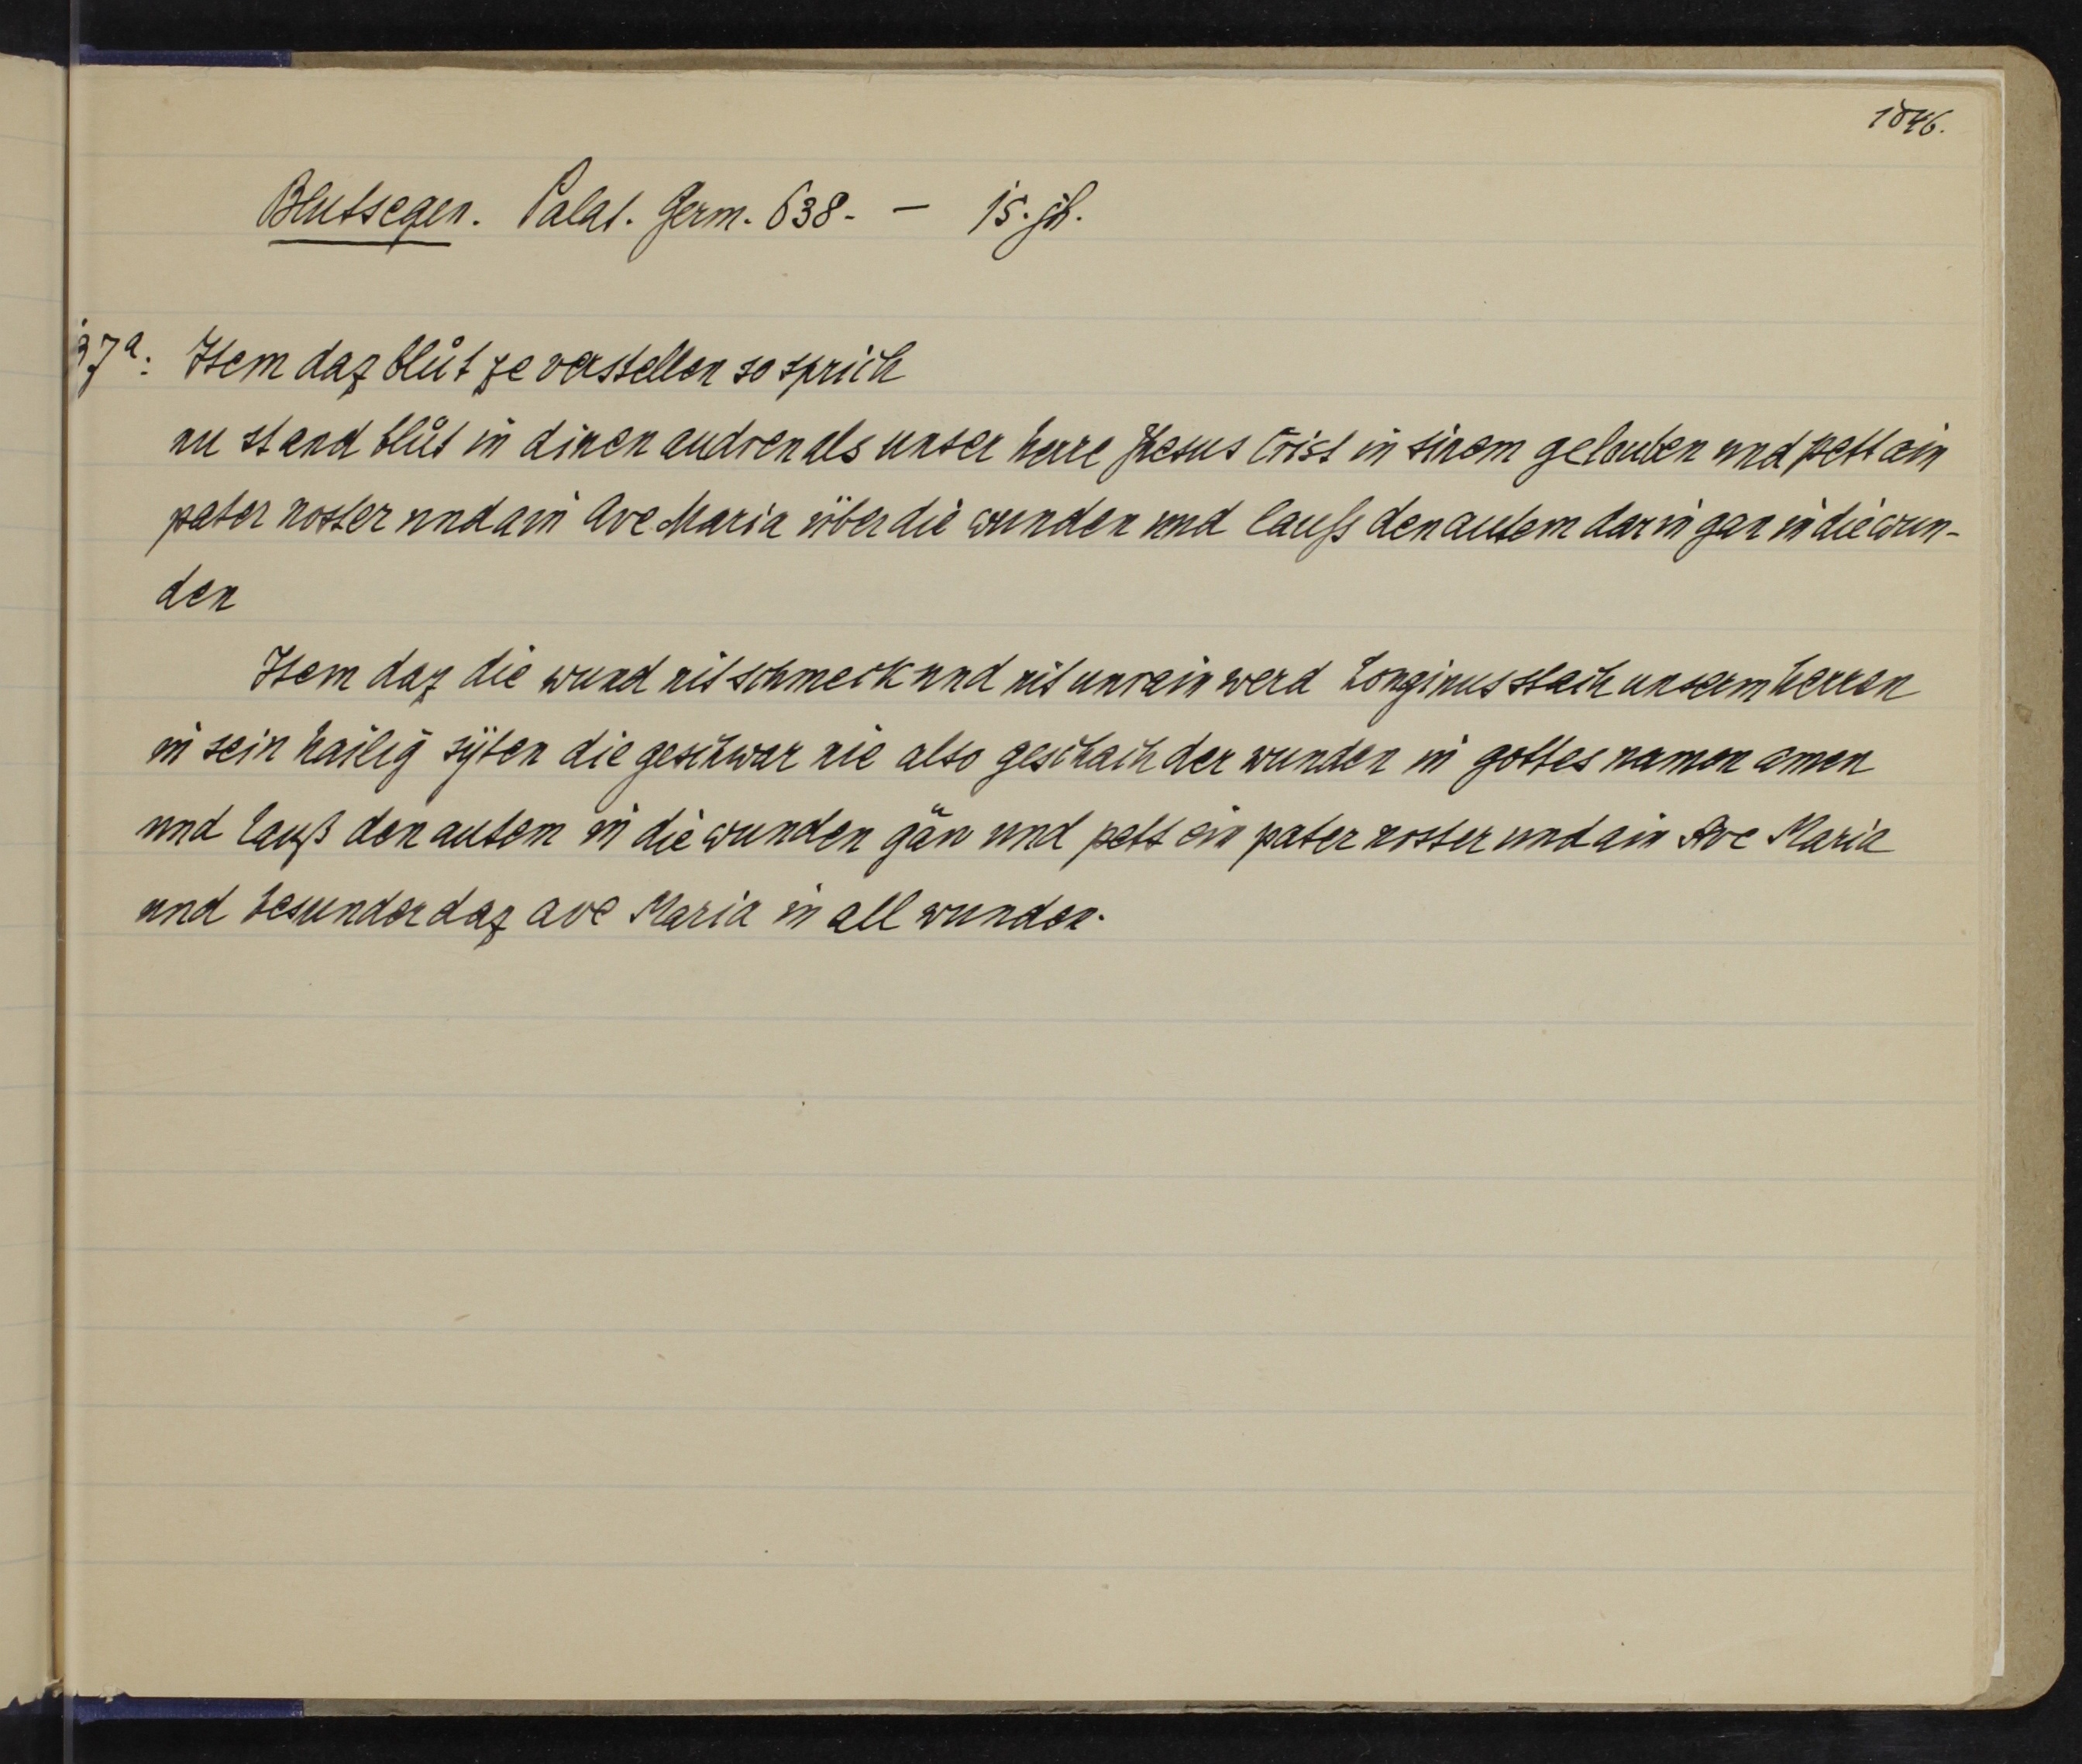 1846.
Blutsegen. Palat. Germ. 638. – 15. jh.
37a: Item daz blůt ze verstellen so sprich
nu stand blůt in dinen audren als unser herre Jhesus Crist in sinem gelouben und pett ain
pater noster und ain Ave Maria über die wunden und lauss den autem darin gan in die wun-
den
Item daz die wund nit schmeck und nit unrain werd Longinus stach unserm herren
in sein hailig sÿten die geschwar nie also geschach der wunden in gottes namen amen
und lauß den autem in die wunden gän und pett ein pater noster und ain Ave Maria
und besunder daz ave Maria in all wunden.